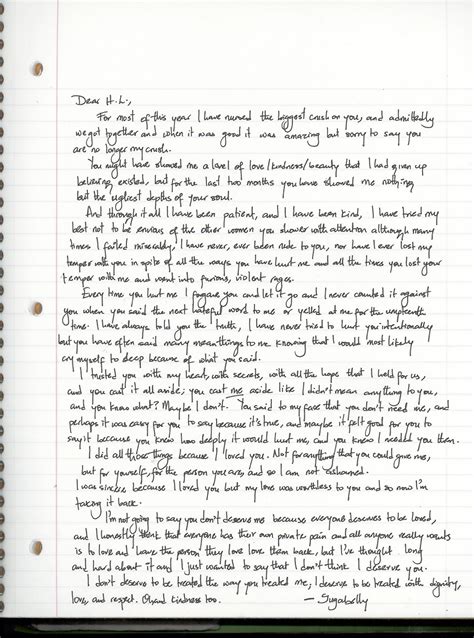 Dear H.L.,
For most of this year I have nursed the biggest crush on you, and admittedly
we got together and when it was good it was amazing but sorry to say you
are no longer my crush.
You might have showed me a level of love/kindness/beauty that I had given up
believing existed, but for the last two months you have showed me nothing
but the ugliest depths of your soul.
And through it all I have been patient, and I have been kind, I have tried my
best not to be envious of the other women you shower with attention although many
times I failed miserably, I have never, ever been rude to you, nor have I ever lost my
temper with you in spite of all the ways you have hurt me and all the times you lost your
temper with me and went into furious, violent rages.
Every time you hurt me I forgave you and let it go and I never counted it against
you when you said the next hateful word to me or yelled at me for the umpteenth
time. I have always told you the truth, I have never tried to hurt you intentionally
but you have often said many mean things to me knowing that I would most likely
cry myself to sleep because of what you said.
I trusted you with my heart, with secrets, with all the hope that I held for us,
and you cast it all aside; you cast me aside like I didn't mean anything to you,
and you know what? Maybe I don't. You said to my face that you don't need me, and
perhaps it was easy for you to say because it's true, and maybe it felt good for you to
say it because you knew how deeply it would hurt me, and you knew I needed you then.
I did all those things because I loved you. Not for anything that you could give me,
but for yourself, for the person you are, and so I am not ashamed.
I was sincere because I loved you but my love was worthless to you and so now I'm
taking it back.
I'm not going to say you don't deserve me because everyone deserves to be loved,
and I honestly think that everyone has their own private pain and all anyone really wants
is to love and have the person they love love them back, but I've thought long
and hard about it and I just wanted to say that I don't think I deserve you.
I don't deserve to be treated the way you treated me, I deserve to be treated with dignity,
love, and respect. Oh and kindness too. — Sugabelly